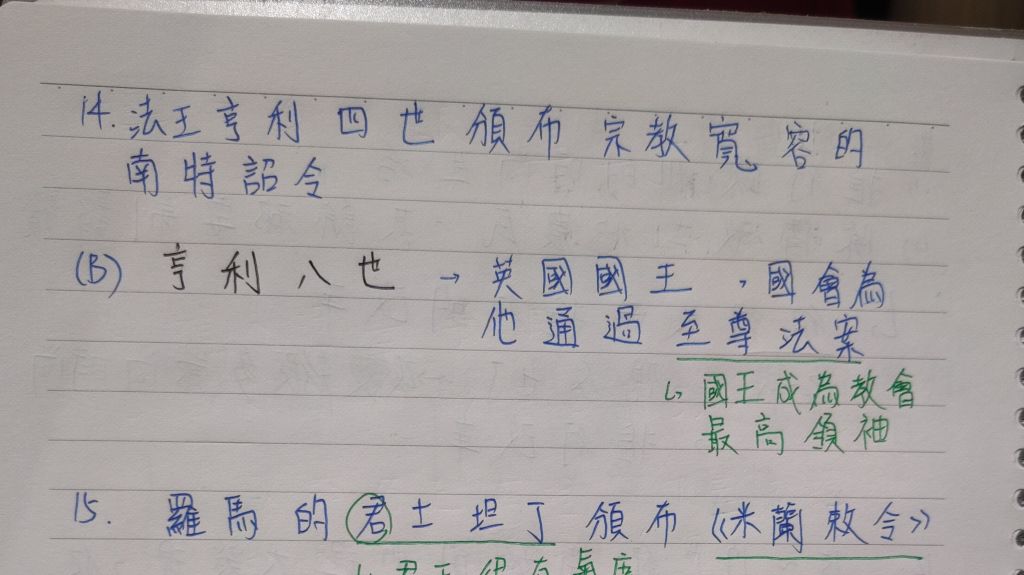 14. 法王亨利四世頒布宗教寬容的
南特詔令
(B) 亨利八世 → 英國國王，國會為
他通過至尊法案
↳ 國王成為教會
最高領袖
15. 羅馬的君士坦丁頒布《米蘭敕令》